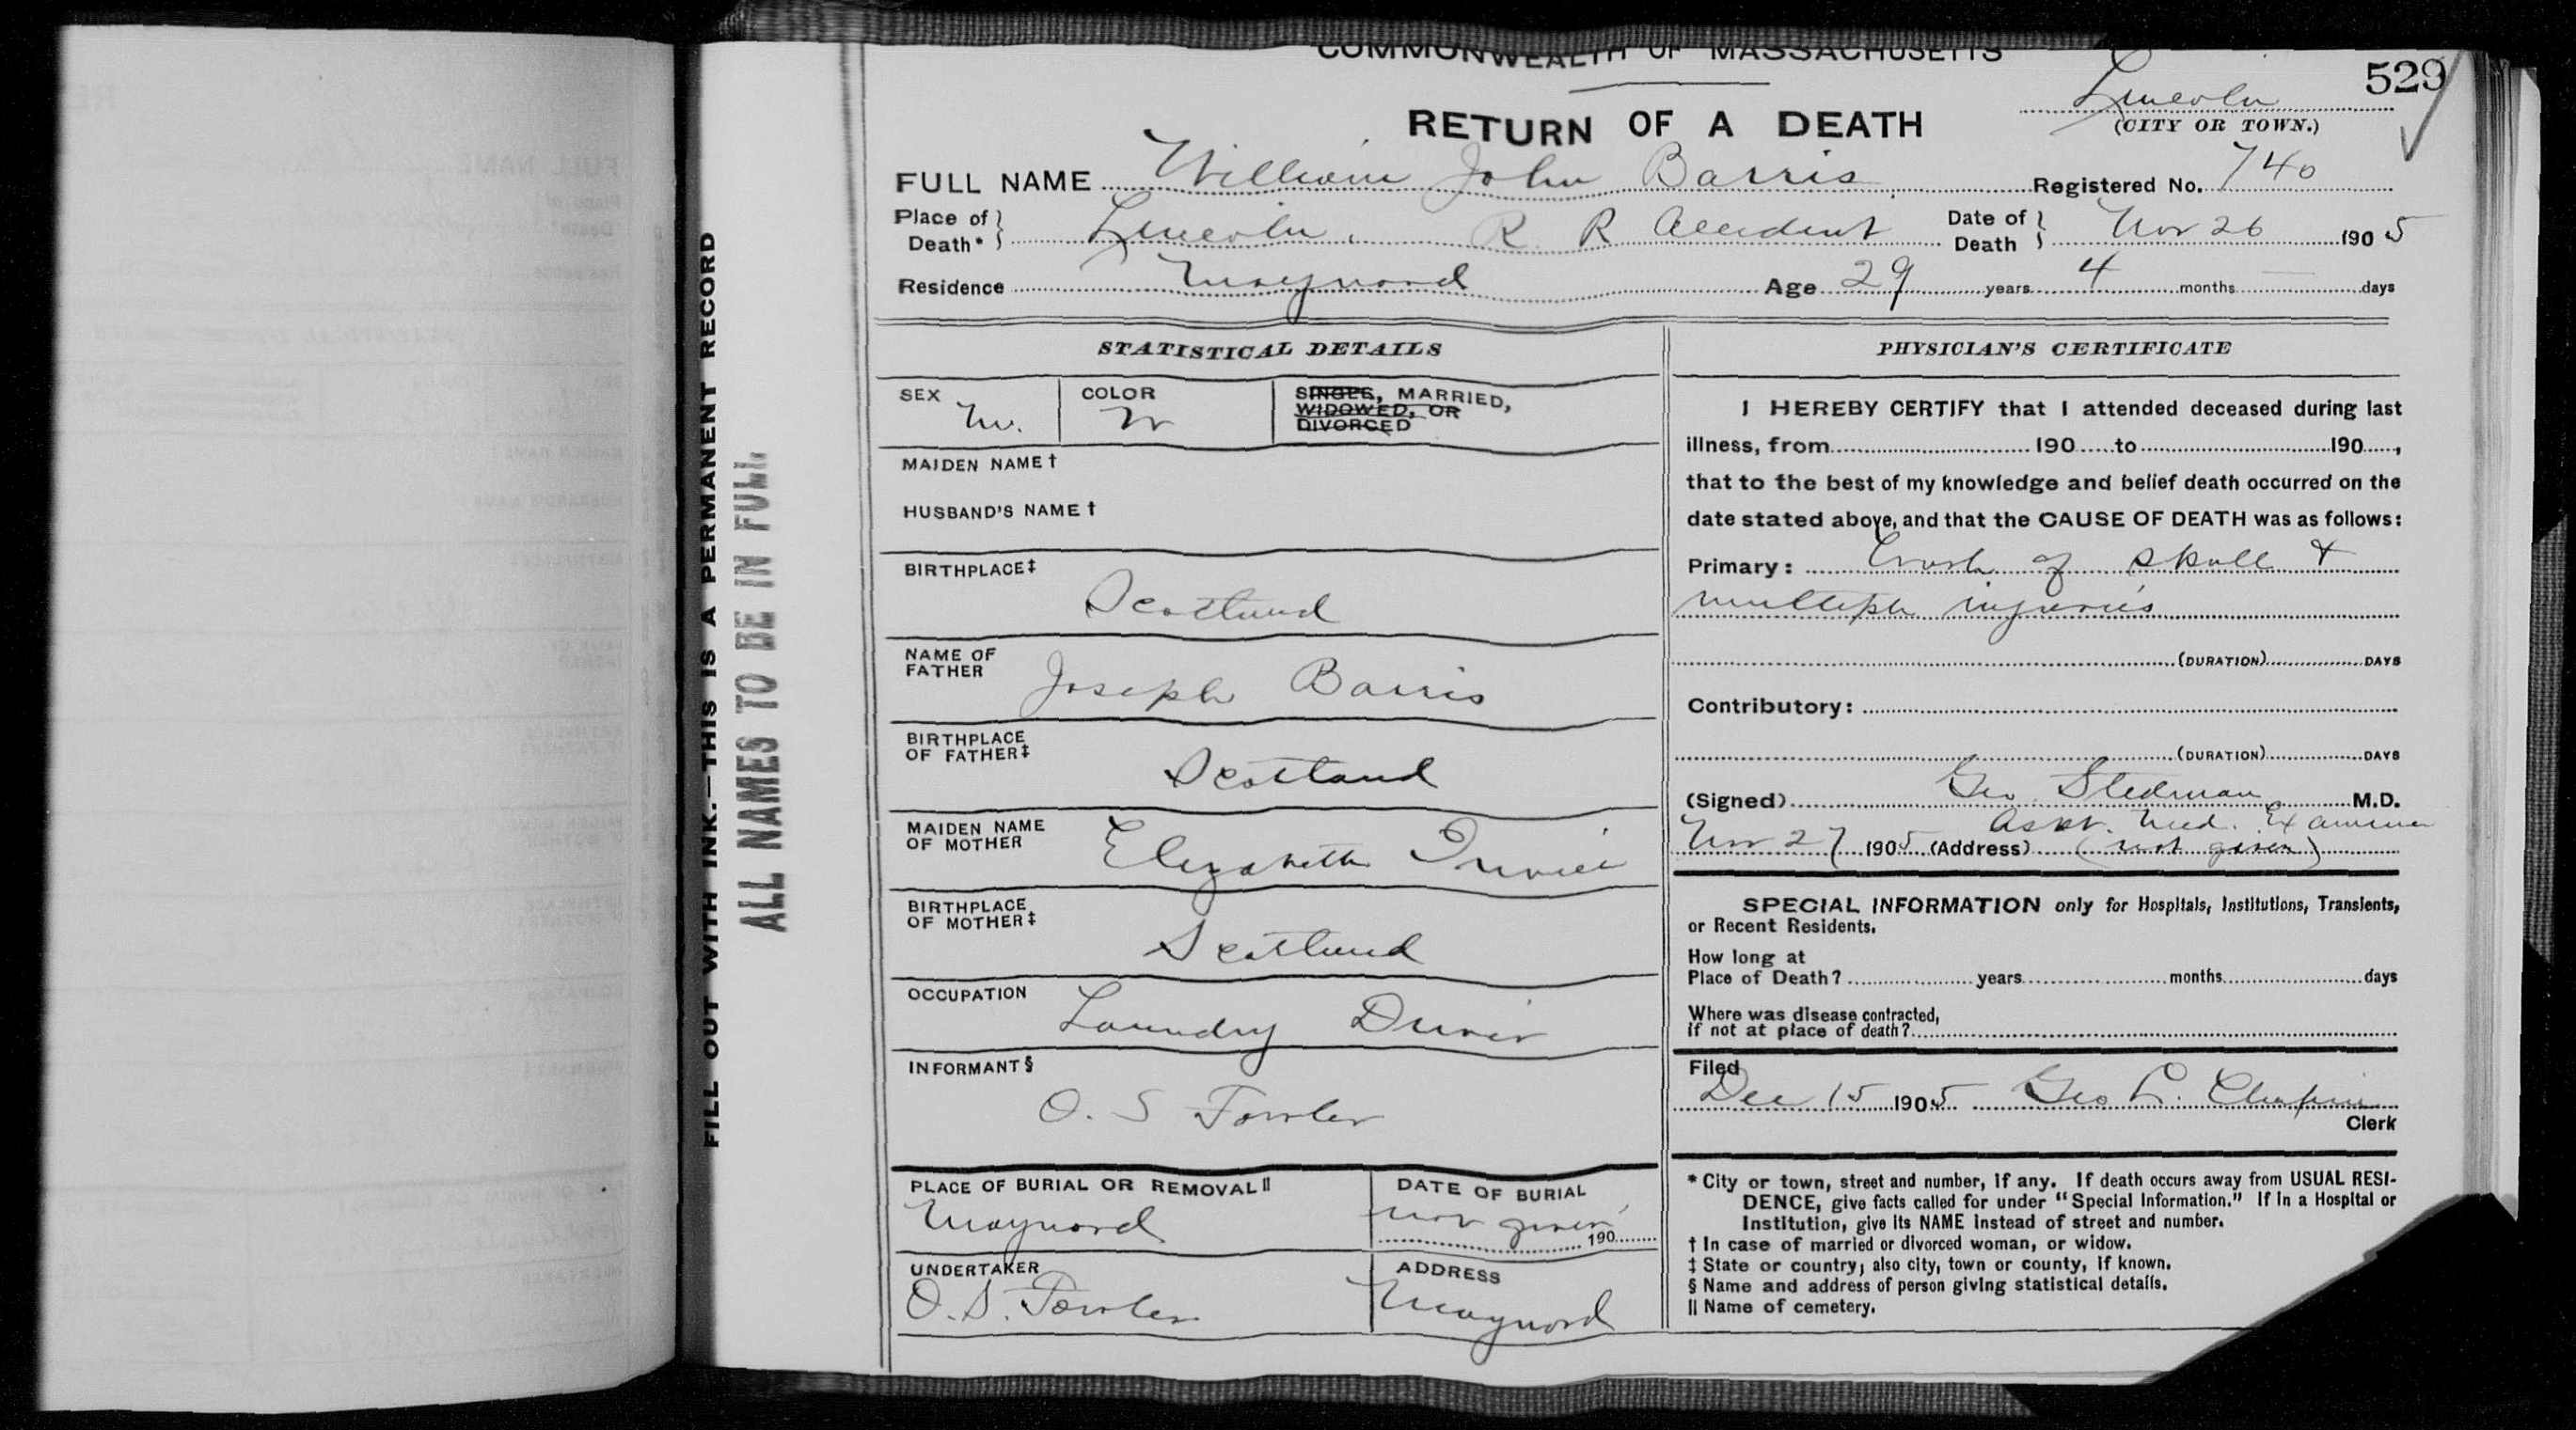 COMMONWEALTH OF MASSACHUSETTS
529
Lincoln
(CITY OR TOWN.)
RETURN OF A DEATH
FULL NAME William John Barris Registered No. 740
Place of Death* Lincoln, R R Accident Date of Death Nov 26 1905
Residence Maynard Age 29 years 4 months — days
FILL OUT WITH INK.—THIS IS A PERMANENT RECORD
ALL NAMES TO BE IN FULL
STATISTICAL DETAILS
SEX M. COLOR W SINGLE, MARRIED,
WIDOWED, OR
DIVORCED
MAIDEN NAME †
HUSBAND'S NAME †
BIRTHPLACE ‡
Scotland
NAME OF FATHER Joseph Barris
BIRTHPLACE OF FATHER ‡ Scotland
MAIDEN NAME OF MOTHER Elizabeth
BIRTHPLACE OF MOTHER ‡ Scotland
OCCUPATION Laundry Driver
INFORMANT §
O. S Fowler
PLACE OF BURIAL OR REMOVAL || Maynard
DATE OF BURIAL not given 190
UNDERTAKER O. S. Fowler
ADDRESS Maynard
PHYSICIAN'S CERTIFICATE
I HEREBY CERTIFY that I attended deceased during last
illness, from 190 to 190 ,
that to the best of my knowledge and belief death occurred on the
date stated above, and that the CAUSE OF DEATH was as follows:
Primary: Crush of skull &
multiple injuries
(DURATION) DAYS
Contributory:
(DURATION) DAYS
(Signed) Geo. Stedman M.D.
Asst. Med. Examiner
Nov 27 1905 (Address) (not given)
SPECIAL INFORMATION only for Hospitals, Institutions, Transients,
or Recent Residents.
How long at
Place of Death? years months days
Where was disease contracted,
if not at place of death?
Filed
Dec 15 1905 Geo L. Chapin
Clerk
* City or town, street and number, if any. If death occurs away from USUAL RESI-
DENCE, give facts called for under "Special Information." If in a Hospital or
Institution, give its NAME instead of street and number.
† In case of married or divorced woman, or widow.
‡ State or country; also city, town or county, if known.
§ Name and address of person giving statistical details.
|| Name of cemetery.